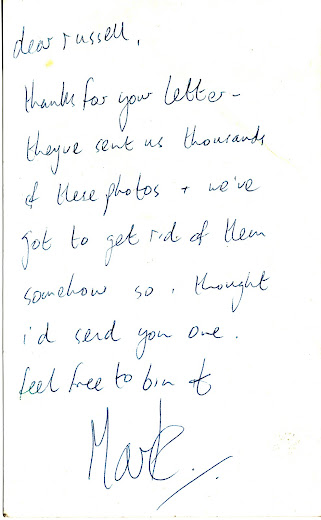 dear russell,
thanks for your letter -
theyve sent us thousands
of these photos + we've
got to get rid of them
somehow so i thought
i'd send you one.
feel free to bin it
Mark.